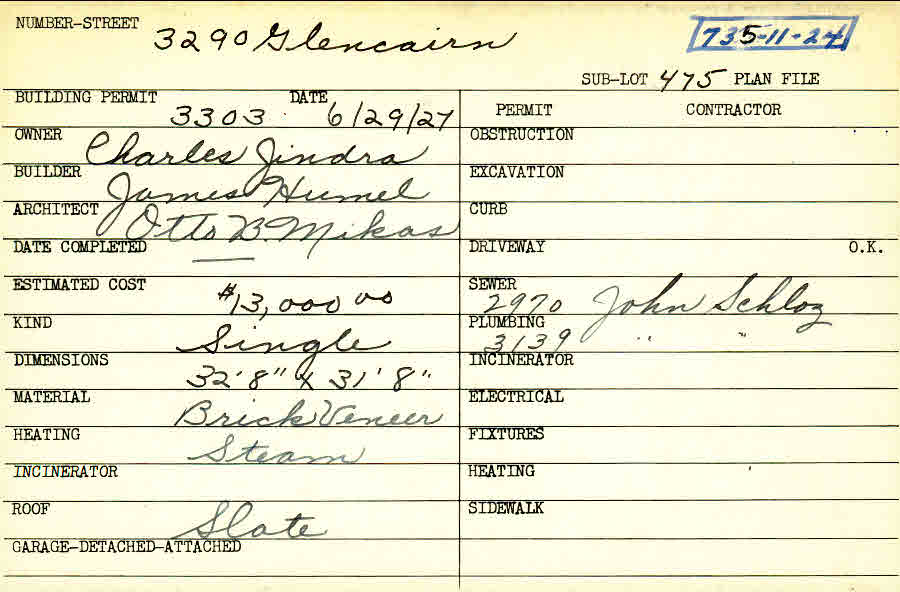 NUMBER-STREET 3290 Glencairn 735-11-24
SUB-LOT 475 PLAN FILE
BUILDING PERMIT 3303 DATE 6/29/27
PERMIT CONTRACTOR
OWNER Charles Jindra
OBSTRUCTION
BUILDER James Humel
EXCAVATION
ARCHITECT Otto B. Mikas
CURB
DATE COMPLETED
DRIVEWAY O.K.
ESTIMATED COST $13,000 00
SEWER 2970 John Schloz
KIND Single
PLUMBING 3139 " "
DIMENSIONS 32'8" x 31'8"
INCINERATOR
MATERIAL Brick Veneer
ELECTRICAL
HEATING Steam
FIXTURES
INCINERATOR
HEATING
ROOF Slate
SIDEWALK
GARAGE-DETACHED-ATTACHED